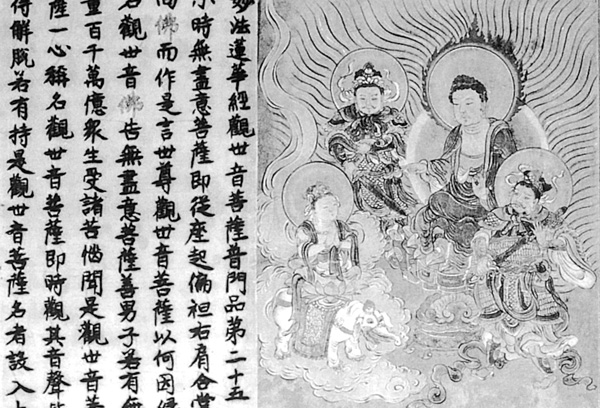 妙法蓮華經觀世音菩薩普門品第二十五
尒時無盡意菩薩即從座起偏袒右肩合掌
向佛而作是言世尊觀世音菩薩以何因緣
名觀世音佛告無盡意菩薩善男子若有無
量百千萬億衆生受諸苦惱聞是觀世音菩
薩一心稱名觀世音菩薩即時觀其音聲皆
得解脫若有持是觀世音菩薩名者設入